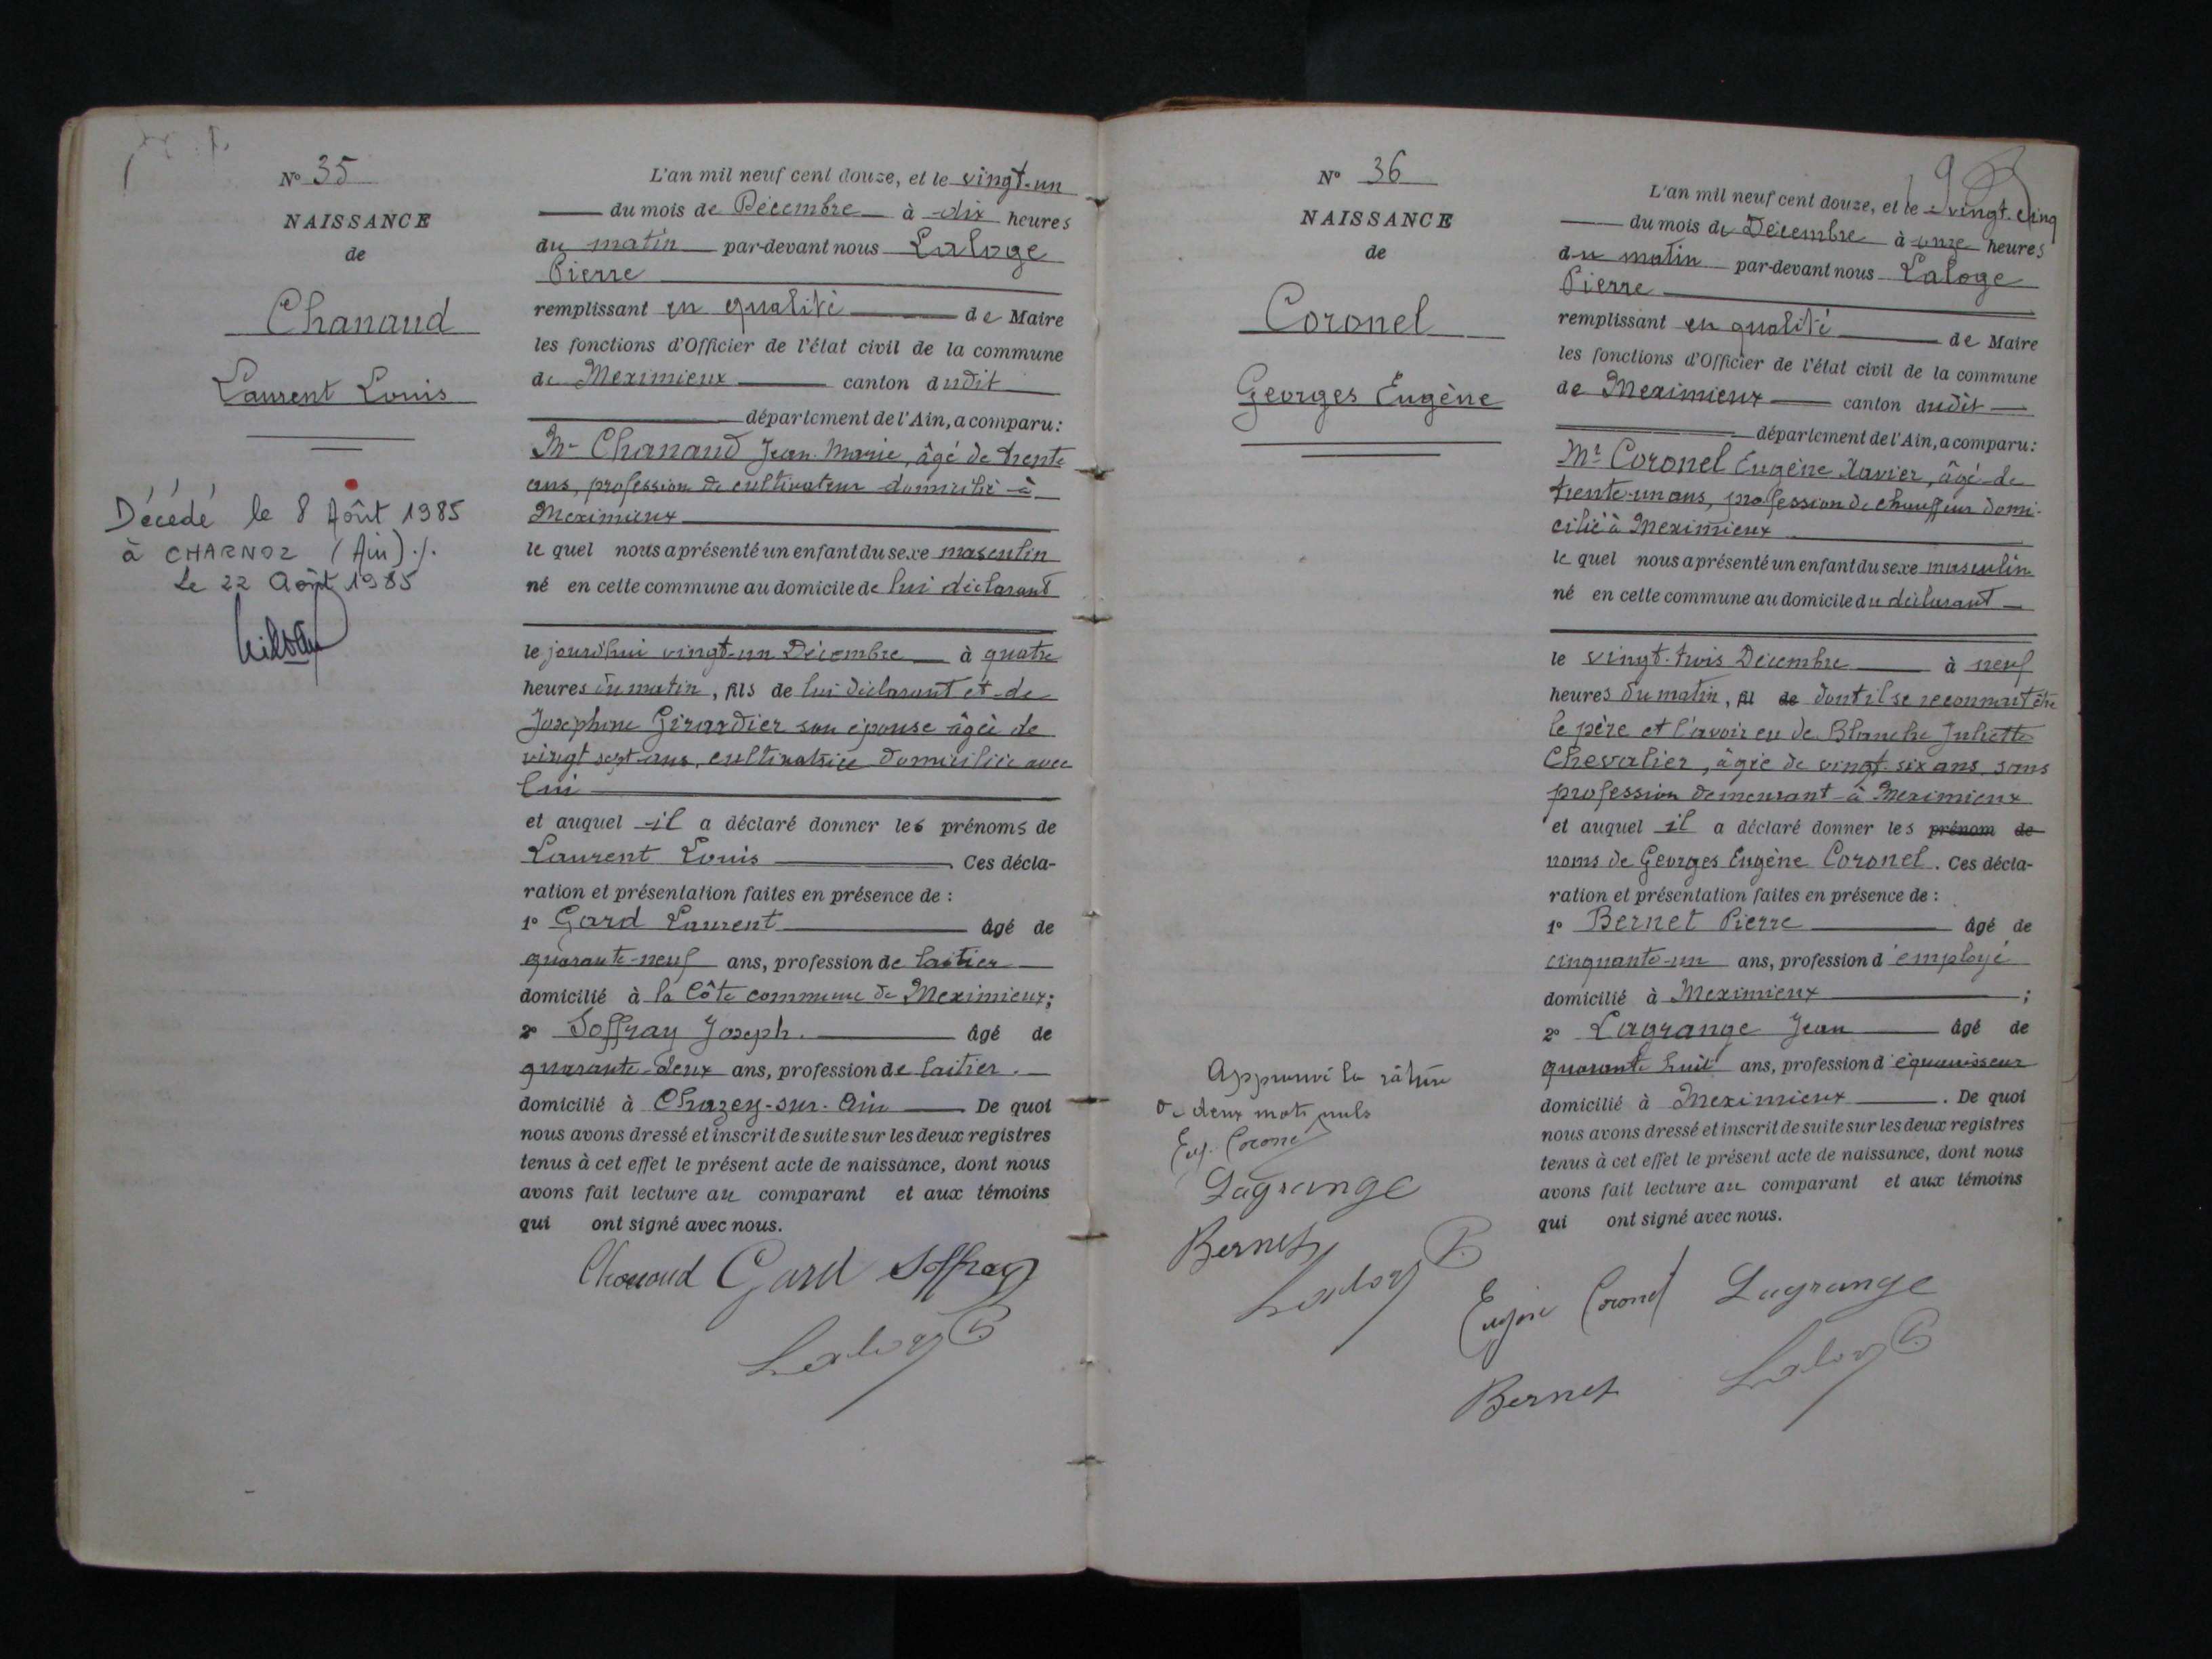 N° 35
NAISSANCE
de
Chanaud
Laurent Louis
Décédé le 8 Août 1985
à CHARNOZ (Ain) ./.
Le 22 Août 1985
L'an mil neuf cent douze, et le vingt-un
du mois de Décembre à dix heures
du matin par-devant nous Laloge
Pierre
remplissant en qualité de Maire
les fonctions d'Officier de l'état civil de la commune
de Meximieux canton dudit
département de l'Ain, a comparu:
Mr Chanaud Jean Marie, âgé de trente
ans, profession de cultivateur domicilié à
Meximieux
le quel nous a présenté un enfant du sexe masculin
né en cette commune au domicile de lui déclarant
le jourd'hui vingt-un Décembre à quatre
heures du matin, fils de lui déclarant et de
Joséphine Girardier son épouse âgée de
vingt sept ans, cultivatrice domiciliée avec
lui
et auquel il a déclaré donner les prénoms de
Laurent Louis Ces décla-
ration et présentation faites en présence de :
1° Gard Laurent âgé de
quarante-neuf ans, profession de laitier
domicilié à la Côte commune de Meximieux;
2° Soffray Joseph. âgé de
quarante-deux ans, profession de laitier.
domicilié à Chazey-sur-Ain De quoi
nous avons dressé et inscrit de suite sur les deux registres
tenus à cet effet le présent acte de naissance, dont nous
avons fait lecture au comparant et aux témoins
qui ont signé avec nous.
Chanaud Gard Soffray
Laloge P.
N° 36
NAISSANCE
de
Coronel
Georges Eugène
Approuvé la râture
de deux mots nuls
Eug. Coronel
Lagrange
Bernet
Laloge P.
L'an mil neuf cent douze, et le vingt-cinq
du mois de Décembre à onze heures
du matin par-devant nous Laloge
Pierre
remplissant en qualité de Maire
les fonctions d'Officier de l'état civil de la commune
de Meximieux canton dudit
département de l'Ain, a comparu:
Mr Coronel Eugène Xavier, âgé de
trente-un ans, profession de chauffeur domi-
cilié à Meximieux
le quel nous a présenté un enfant du sexe masculin
né en cette commune au domicile du déclarant
le vingt-trois Décembre à neuf
heures du matin, fil de dont il se reconnait être
le père et l'avoir eu de Blanche Juliette
Chevalier, âgée de vingt-six ans, sans
profession demeurant à Meximieux
et auquel il a déclaré donner les prénom de
noms de Georges Eugène Coronel. Ces décla-
ration et présentation faites en présence de :
1° Bernet Pierre âgé de
cinquante-un ans, profession d'employé
domicilié à Meximieux ;
2° Lagrange Jean âgé de
quarante huit ans, profession d'équarisseur
domicilié à Meximieux . De quoi
nous avons dressé et inscrit de suite sur les deux registres
tenus à cet effet le présent acte de naissance, dont nous
avons fait lecture au comparant et aux témoins
qui ont signé avec nous.
Eugène Coronel Lagrange
Bernet Laloge P.